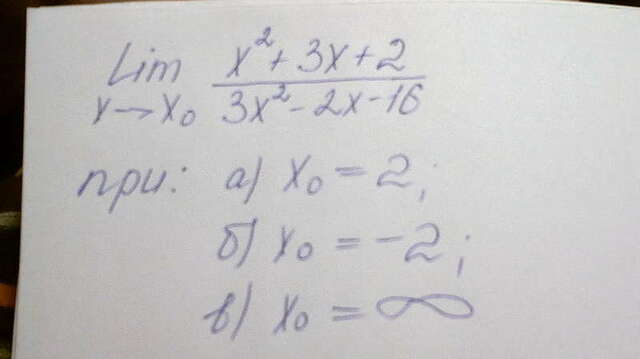 Lim x²+3x+2
x→x₀ 3x²-2x-16
при: а) x₀ = 2;
б) x₀ = -2;
в) x₀ = ∞